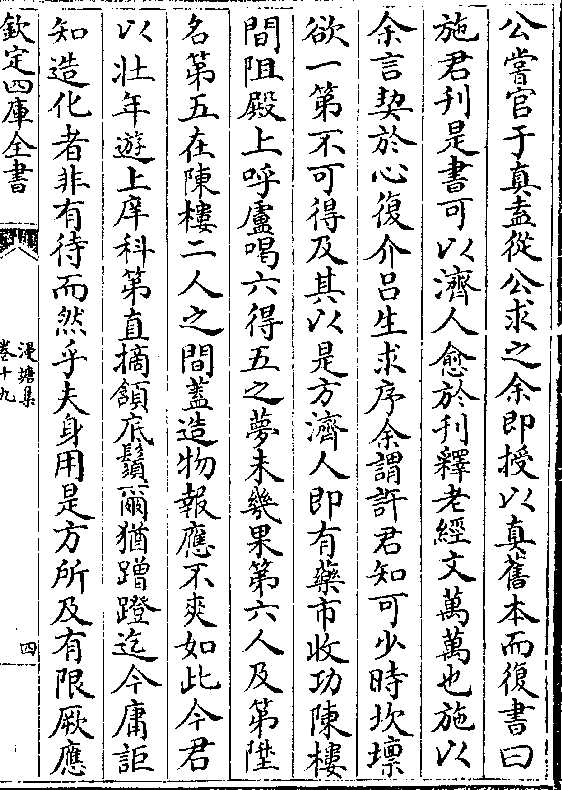 公嘗官于真盍從公求之余即授以真舊本而復書曰
施君刊是書可以濟人愈於刊釋老經文萬萬也施以
余言契於心復介吕生求序余謂許君知可少時坎壈
欲一第不可得及其以是方濟人即有藥市收功陳樓
間阻殿上呼盧喝六得五之夢未幾果第六人及第陞
名第五在陳樓二人之間蓋造物報應不爽如此今君
以壯年遊上庠科第直摘頷底鬚爾猶蹭蹬迄今庸詎
知造化者非有待而然乎夫身用是方所及有限厥應
欽定四庫全書
漫塘集
卷十九
四